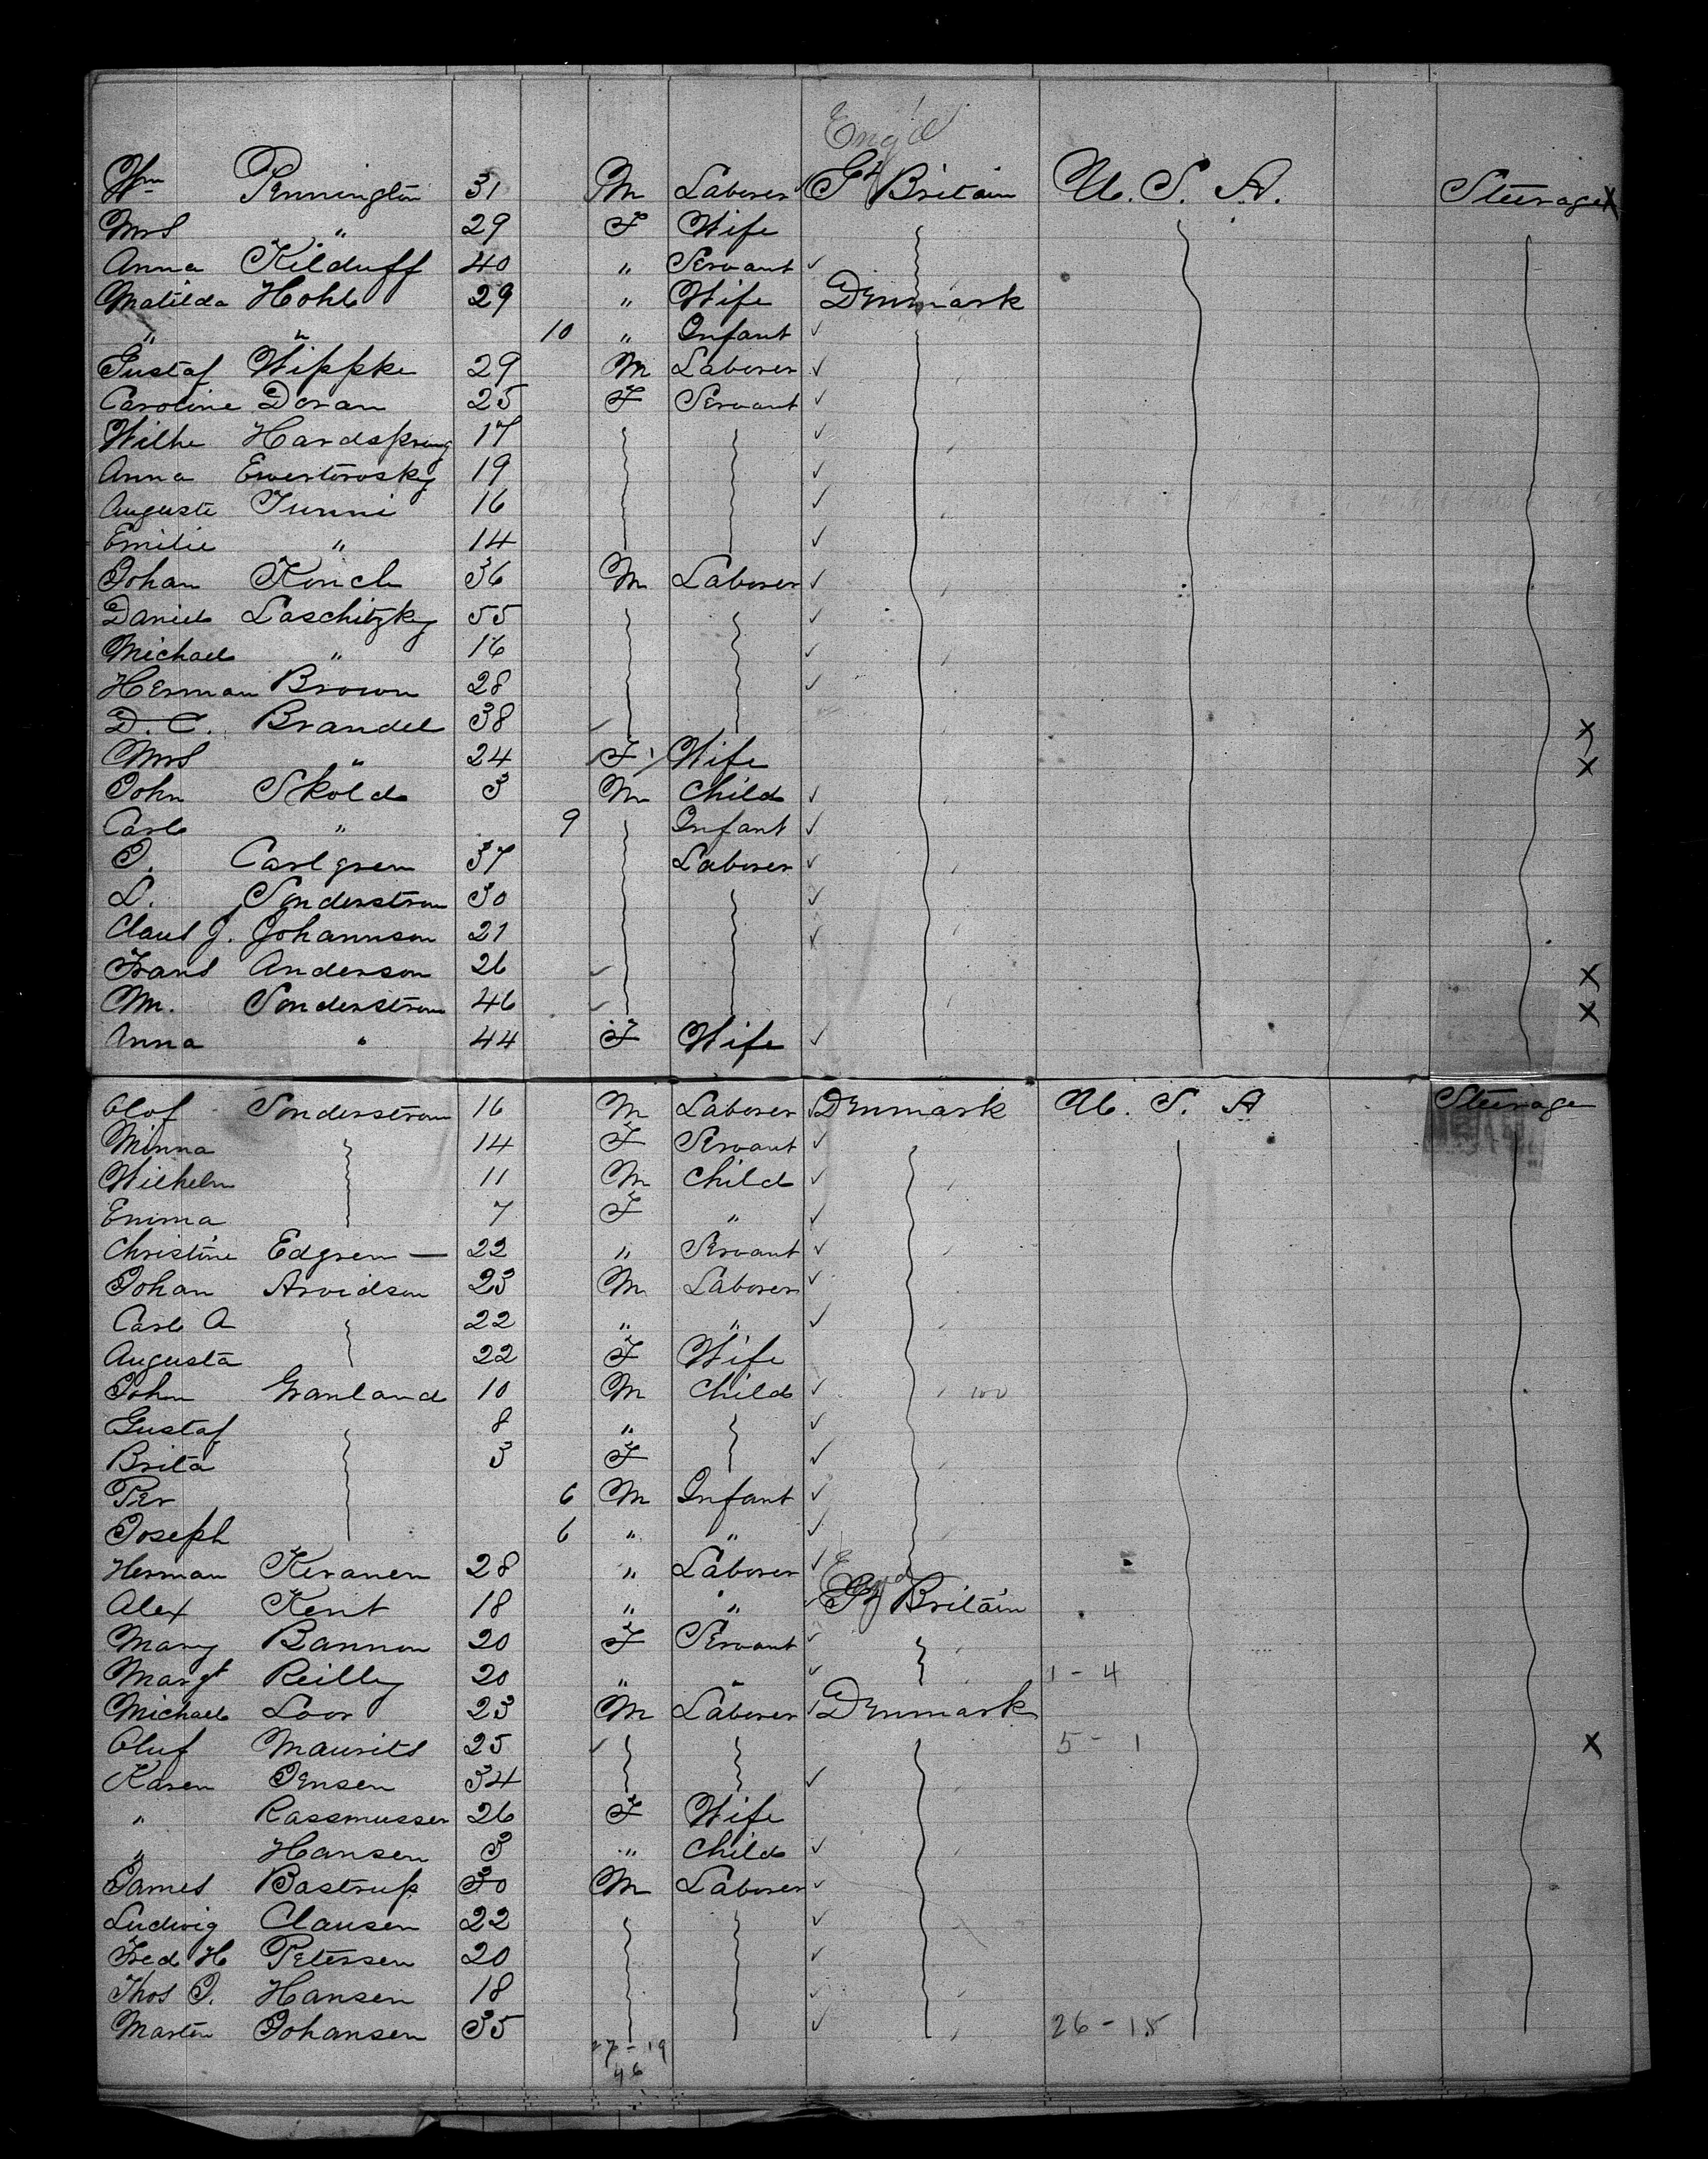 Eng'd
Wm Pennington 31 M Laborer Gt Britain U. S. A. Steerage X
Mrs " 29 F Wife
Anna Kilduff 40 " Servant ✓
Matilda Hohl 29 " Wife Denmark
" " 10 " Infant ✓
Gustaf Wippke 29 M Laborer ✓
Caroline Doran 25 F Servant ✓
Wilhe Hardsprung 17 ✓
Anna Ewertowsky 19 ✓
Auguste Tunni 16 ✓
Emilie " 14 ✓
Johan Konch 36 M Laborer ✓
Daniel Laschitzky 55 ✓
Michael " 16 ✓
Herman Brown 28 ✓
D. C. Brandel 38 ✓ X
Mrs " 24 F Wife X
John Skold 3 M Child ✓
Carl " 9 Infant ✓
J. Carlgren 37 Laborer ✓
L. Sonderstrom 30 ✓
Claus J. Johannson 21 ✓
Frans Anderson 26 ✓ X
M. Sonderstrom 46 ✓ X
Anna " 44 F Wife ✓
Olof Sonderstrom 16 M Laborer ✓ Denmark U. S. A Steerage
Minna 14 F Servant ✓
Wilhelm 11 M Child ✓
Emma 7 F " ✓
Christine Edgren — 22 " Servant ✓
Johan Arvidson 23 M Laborer ✓
Carl A 22 " " ✓
Augusta 22 F Wife
John Granland 10 M Child ✓ 100
Gustaf 8 " ✓
Brita 3 F ✓
Per 6 M Infant ✓
Joseph 6 " " ✓
Herman Keranen 28 " Laborer ✓
Alex Kent 18 " " ✓ Gt Britain
Mary Bannon 20 F Servant ✓
Margt Reilly 20 " " ✓ 1 - 4
Michael Loor 23 M Laborer ✓ Denmark
Oluf Maurits 25 ✓ 5 - 1 X
Karen Jensen 34 ✓
" Rassmussen 26 F Wife
" Hansen 3 " Child ✓
James Bastrup 30 M Laborer ✓
Ludwig Clausen 22 ✓
Fred H Petersen 20 ✓
Thos J. Hansen 18 ✓
Martin Johansen 35 ✓ 26 - 15
27 - 19
46